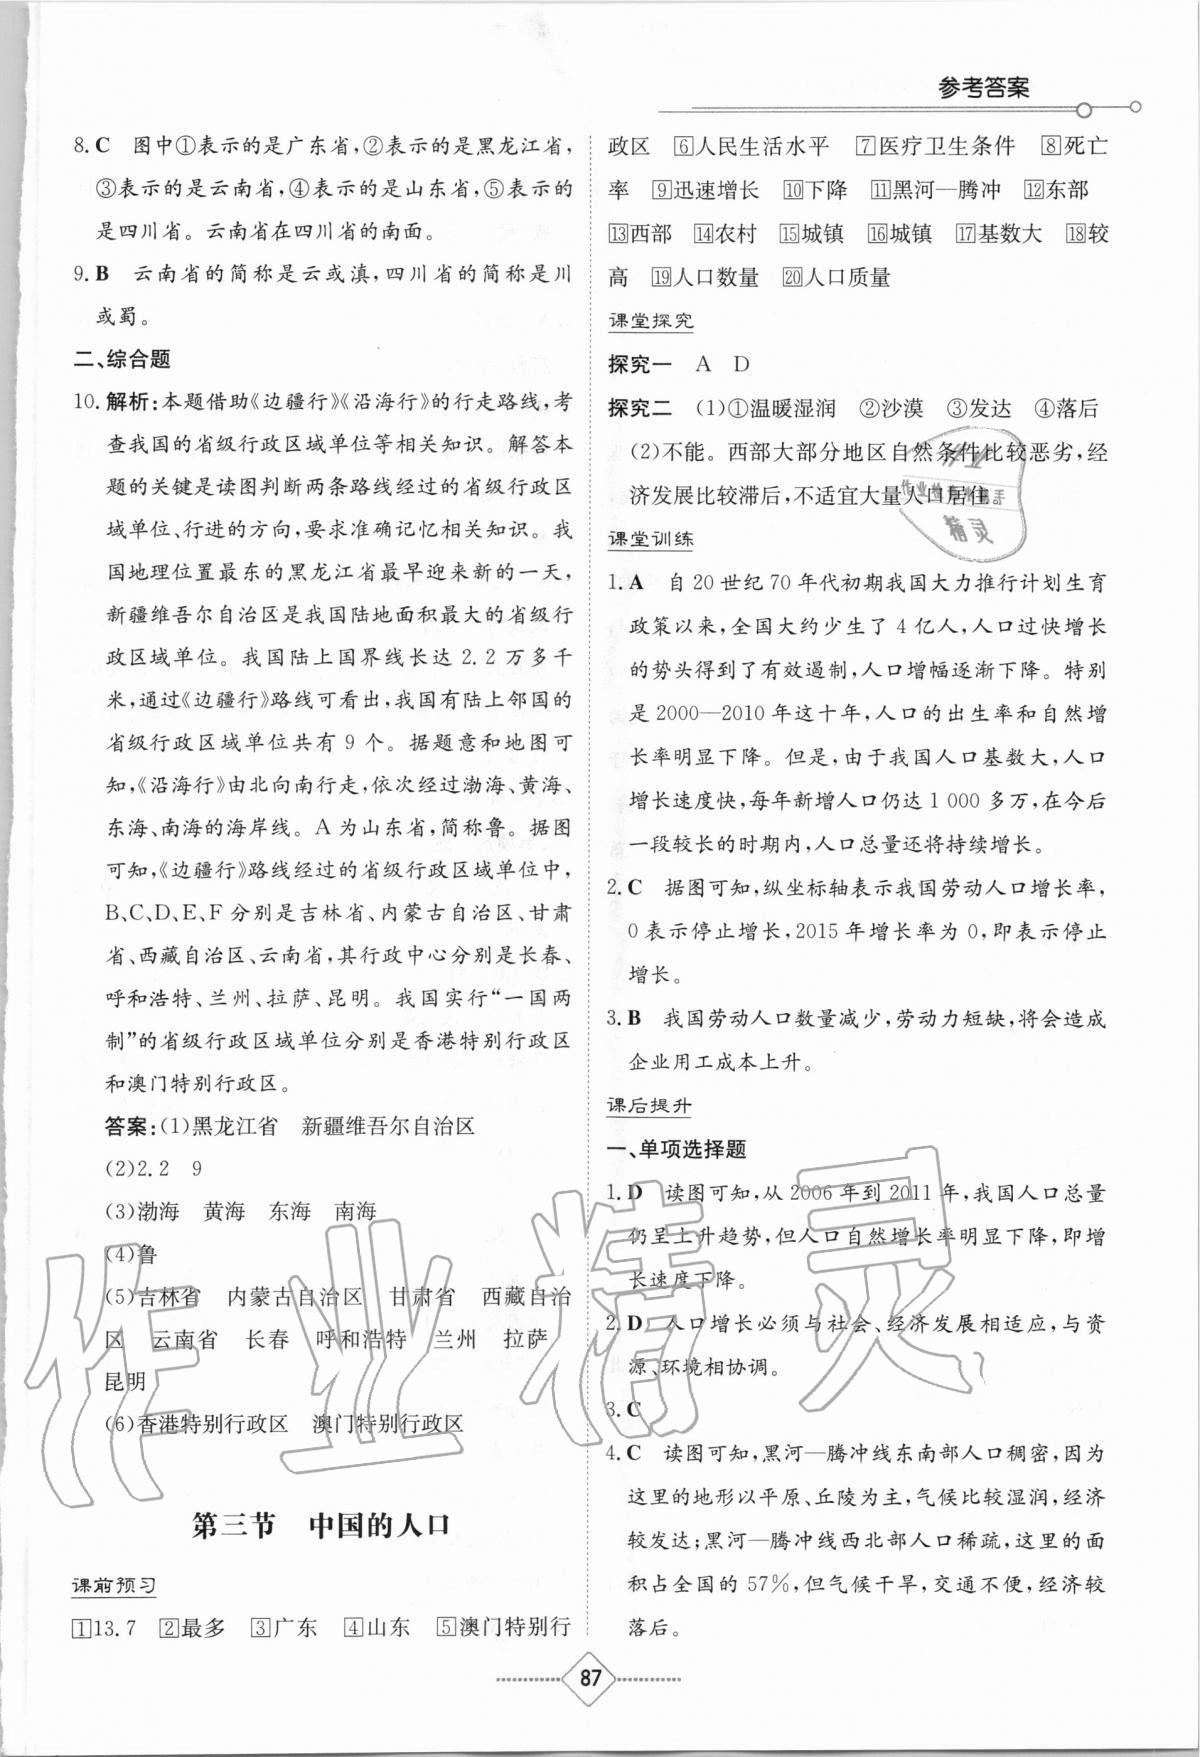 参考答案
8. C 图中①表示的是广东省,②表示的是黑龙江省,
③表示的是云南省,④表示的是山东省,⑤表示的
是四川省。云南省在四川省的南面。
9. B 云南省的简称是云或滇,四川省的简称是川
或蜀。
二、综合题
10. 解析:本题借助《边疆行》《沿海行》的行走路线,考
查我国的省级行政区域单位等相关知识。解答本
题的关键是读图判断两条路线经过的省级行政区
域单位、行进的方向,要求准确记忆相关知识。我
国地理位置最东的黑龙江省最早迎来新的一天,
新疆维吾尔自治区是我国陆地面积最大的省级行
政区域单位。我国陆上国界线长达 2.2 万多千
米,通过《边疆行》路线可看出,我国有陆上邻国的
省级行政区域单位共有 9 个。据题意和地图可
知,《沿海行》由北向南行走,依次经过渤海、黄海、
东海、南海的海岸线。A 为山东省,简称鲁。据图
可知,《边疆行》路线经过的省级行政区域单位中,
B、C、D、E、F 分别是吉林省、内蒙古自治区、甘肃
省、西藏自治区、云南省,其行政中心分别是长春、
呼和浩特、兰州、拉萨、昆明。我国实行“一国两
制”的省级行政区域单位分别是香港特别行政区
和澳门特别行政区。
答案:(1)黑龙江省 新疆维吾尔自治区
(2)2.2 9
(3)渤海 黄海 东海 南海
(4)鲁
(5)吉林省 内蒙古自治区 甘肃省 西藏自治
区 云南省 长春 呼和浩特 兰州 拉萨
昆明
(6)香港特别行政区 澳门特别行政区
第三节 中国的人口
课前预习
1 13.7 2 最多 3 广东 4 山东 5 澳门特别行
政区 6 人民生活水平 7 医疗卫生条件 8 死亡
率 9 迅速增长 10 下降 11 黑河—腾冲 12 东部
13 西部 14 农村 15 城镇 16 城镇 17 基数大 18 较
高 19 人口数量 20 人口质量
课堂探究
探究一 A D
探究二 (1)①温暖湿润 ②沙漠 ③发达 ④落后
(2)不能。西部大部分地区自然条件比较恶劣,经
济发展比较滞后,不适宜大量人口居住。
课堂训练
1. A 自 20 世纪 70 年代初期我国大力推行计划生育
政策以来,全国大约少生了 4 亿人,人口过快增长
的势头得到了有效遏制,人口增幅逐渐下降。特别
是 2000—2010 年这十年,人口的出生率和自然增
长率明显下降。但是,由于我国人口基数大,人口
增长速度快,每年新增人口仍达 1 000 多万,在今后
一段较长的时期内,人口总量还将持续增长。
2. C 据图可知,纵坐标轴表示我国劳动人口增长率,
0 表示停止增长,2015 年增长率为 0,即表示停止
增长。
3. B 我国劳动人口数量减少,劳动力短缺,将会造成
企业用工成本上升。
课后提升
一、单项选择题
1. D 读图可知,从 2006 年到 2011 年,我国人口总量
仍呈上升趋势,但人口自然增长率明显下降,即增
长速度下降。
2. D 人口增长必须与社会、经济发展相适应,与资
源、环境相协调。
3. C
4. C 读图可知,黑河—腾冲线东南部人口稠密,因为
这里的地形以平原、丘陵为主,气候比较湿润,经济
较发达;黑河—腾冲线西北部人口稀疏,这里的面
积占全国的 57%,但气候干旱,交通不便,经济较
落后。
87
作业精灵